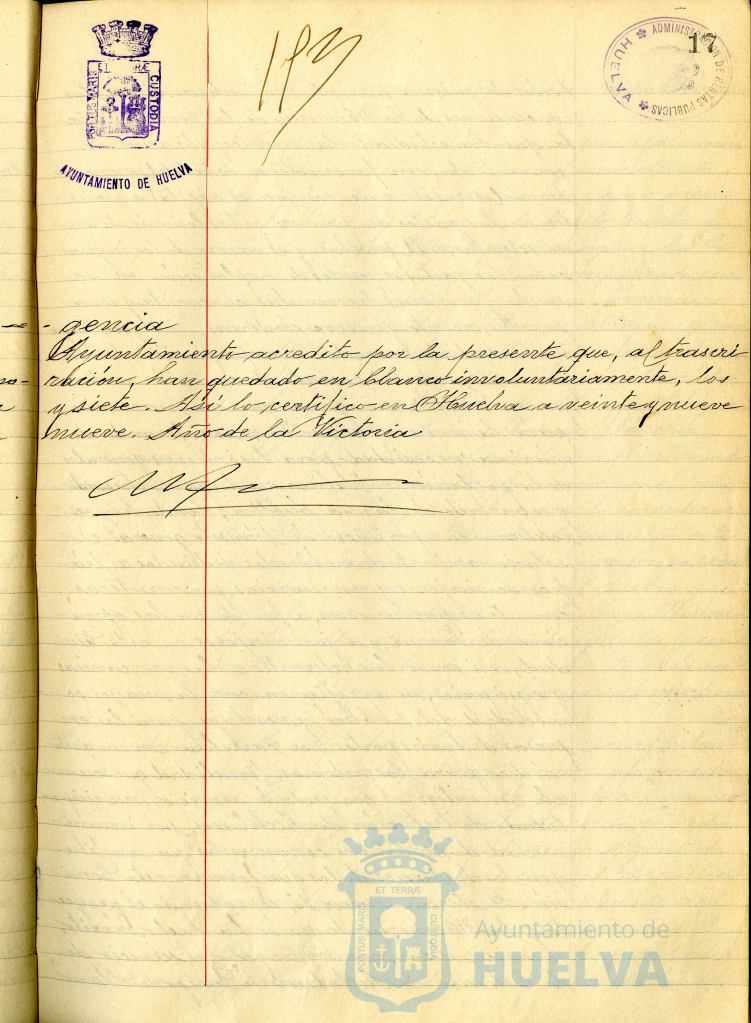 ET TERRÆ
PORTUS MARIS
CUSTODIA
AYUNTAMIENTO DE HUELVA
17
ADMINISTRACION DE RENTAS PUBLICAS
HUELVA
- gencia
Ayuntamiento acredito por la presente que, al trascri-
ración, han quedado en blanco involuntariamente, los
y siete. Así lo certifico en Huelva a veinte y nueve
nueve. Año de la Victoria
ET TERRÆ
PORTUS MARIS
CUSTODIA
Ayuntamiento de
HUELVA